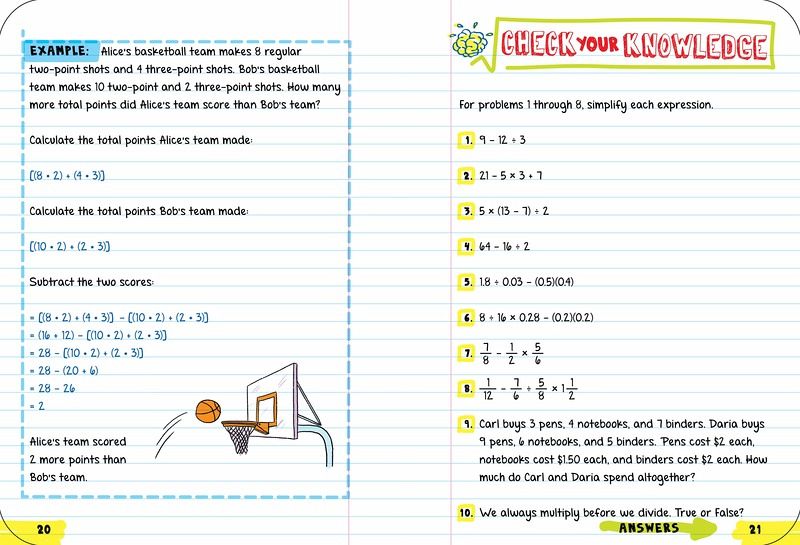 EXAMPLE: Alice's basketball team makes 8 regular
two-point shots and 4 three-point shots. Bob's basketball
team makes 10 two-point and 2 three-point shots. How many
more total points did Alice's team score than Bob's team?
Calculate the total points Alice's team made:
[(8 • 2) + (4 • 3)]
Calculate the total points Bob's team made:
[(10 • 2) + (2 • 3)]
Subtract the two scores:
= [(8 • 2) + (4 • 3)] - [(10 • 2) + (2 • 3)]
= (16 + 12) - [(10 • 2) + (2 • 3)]
= 28 - [(10 • 2) + (2 • 3)]
= 28 - (20 + 6)
= 28 - 26
= 2
Alice's team scored
2 more points than
Bob's team.
20
CHECK YOUR KNOWLEDGE
For problems 1 through 8, simplify each expression.
1. 9 - 12 ÷ 3
2. 21 - 5 × 3 + 7
3. 5 × (13 - 7) ÷ 2
4. 64 - 16 ÷ 2
5. 1.8 ÷ 0.03 - (0.5)(0.4)
6. 8 ÷ 16 × 0.28 - (0.2)(0.2)
7. 7/8 - 1/2 × 5/6
8. 1/12 - 7/6 ÷ 5/8 × 1 1/2
9. Carl buys 3 pens, 4 notebooks, and 7 binders. Daria buys
9 pens, 6 notebooks, and 5 binders. Pens cost $2 each,
notebooks cost $1.50 each, and binders cost $2 each. How
much do Carl and Daria spend altogether?
10. We always multiply before we divide. True or False?
ANSWERS
21